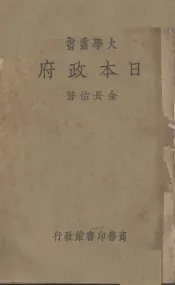 書叢學大
府政本日
著佑長金
行發館書印務商